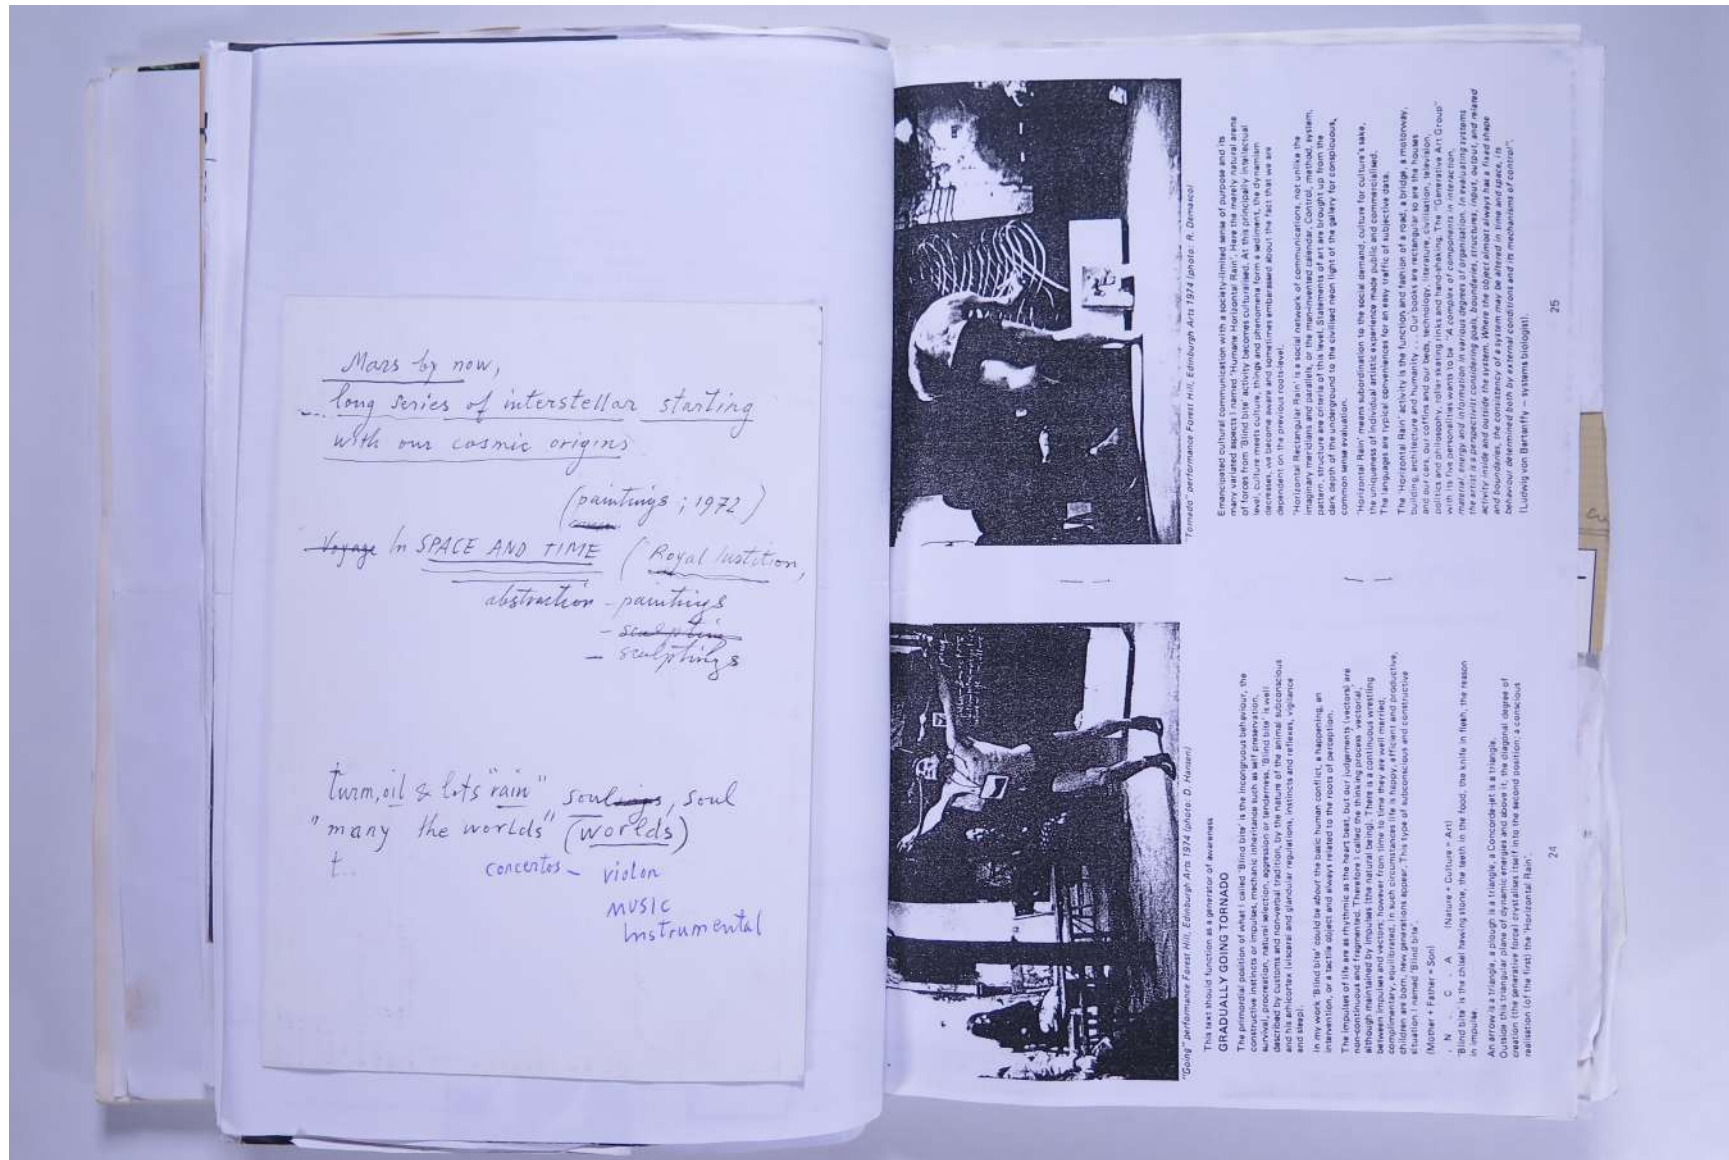 Mars by now,
long series of interstellar starting
with our cosmic origins
(paintings ; 1972)
Voyage In SPACE AND TIME (Royal Instition,
abstraction - paintings
- sculpting
- sculptings
turm, oil & lots "rain", soulings, soul
"many the worlds" (worlds)
t..
concertos - violon
MUSIC
Instrumental
"Going" performance Forest Hill, Edinburgh Arts 1974 (photo: D. Hansen)
This text should function as a generator of awareness
GRADUALLY GOING TORNADO
The primordial position of what I called 'Blind bite' is the incongruous behaviour, the
constructive instincts or impulses, mechanic inheritance such as self preservation,
survival, procreation, natural selection, aggression or tenderness. 'Blind bite' is well
described by customs and non-verbal tradition, by the nature of the animal subconscious
and his archicortex (visceral and glandular regulations, instincts and reflexes, vigilance
and sleep).
In my work 'Blind bite' could be about the basic human conflict, a happening, an
intervention, or a tactile object and always related to the roots of perception.
The impulses of life are as rhythmic as the heart beat, but our judgements (vectors) are
non-continuous and fragmented. Therefore I called the thinking process 'vectorial',
although maintained by impulses (the natural being). There is a continuous wrestling
between impulses and vectors; however from time to time they are well married,
complimentary, equilibrated. In such circumstances life is happy, efficient and productive,
children are born, new generations appear. This type of subconscious and constructive
situation I named 'Blind bite'.
(Mother + Father = Son)
. N . C . A (Nature + Culture = Art)
'Blind bite' is the chisel hewing stone, the teeth in the food, the knife in flesh, the reason
in impulse.
An arrow is a triangle, a plough is a triangle, a Concorde-jet is a triangle.
Outside this triangular plane of dynamic energies and above it, the diagonal degree of
creation (the generative force) crystalises itself in to the second position: a conscious
realisation (of the first) the 'Horizontal Rain'.
24
"Tornado" performance Forest Hill, Edinburgh Arts 1974 (photo: R. Demarco)
Emancipated cultural communication with a society-limited sense of purpose and its
many variated aspects I named 'Humane Horizontal Rain'. Here the merely natural arena
of forces from 'Blind bite' activity becomes culturalised. At this principally intellectual
level, culture meets culture, things and phenomena form a sediment, the dynamism
decreases, we become aware and sometimes embarassed about the fact that we are
dependent on the previous roots-level.
'Horizontal Rectangular Rain' is a social network of communications, not unlike the
imaginary meridians and parallels, or the man-invented calendar. Control, method, system,
pattern, structure are criteria of this level. Statements of art are brought up from the
dark depth of the underground to the civilised neon light of the gallery for conspicuous,
common sense evaluation.
'Horizontal Rain' means subordination to the social demand, culture for culture's sake,
the uniqueness of individual artistic experience made public and commercialised.
The languages are typical conveniences for an easy traffic of subjective data.
The 'Horizontal Rain' activity is the function and fashion of a road, a bridge, a motorway,
building, architecture and humanity . . . Our books are rectangular so are the houses
and our cars, our coffins and our beds, technology, literature, civilisation, television,
politics and philosophy, roller skating rinks and hand-shaking. The "Generative Art Group"
with its five personalities wants to be "A complex of components in interaction,
material, energy and information in various degrees of organisation. In evaluating systems
the artist is a perspectivist considering goals, boundaries, structures, input, output, and related
activity inside and outside the system. Where the object almost always has a fixed shape
and boundaries, the consistency of a system may be altered in time and space, its
behaviour determined both by external conditions and its mechanisms of control".
(Ludwig von Bertanffy – systems biologist).
25